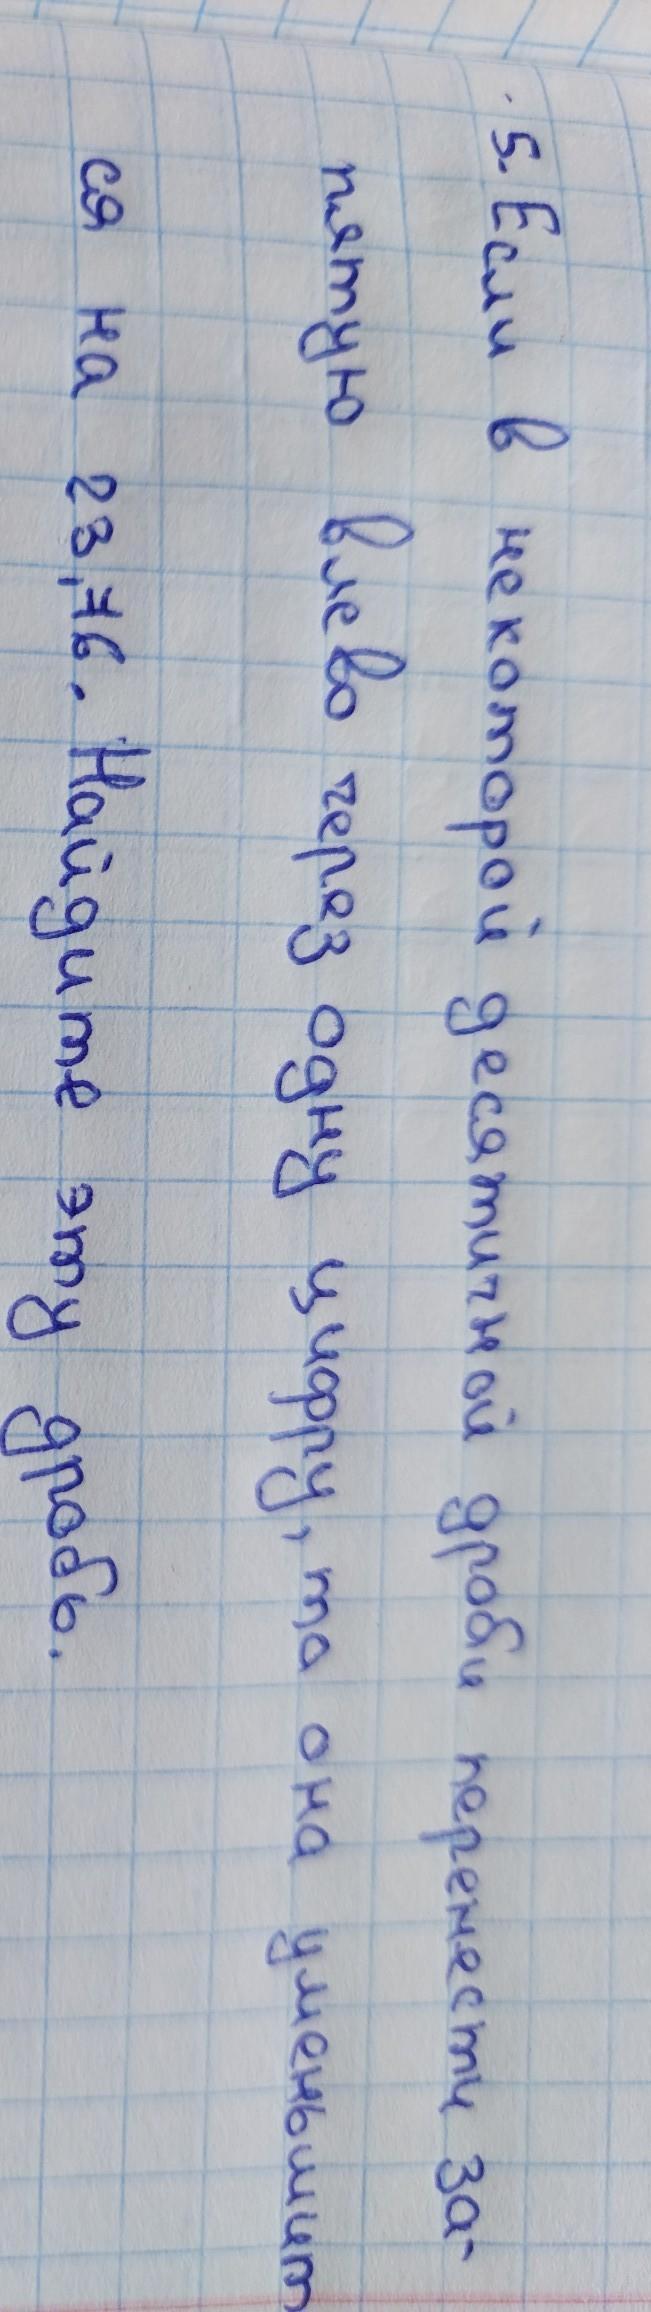 5. Если в некоторой десятичной дроби перенести за-
пятую влево через одну цифру, то она уменьшит
ся на 23,76. Найдите эту дробь.